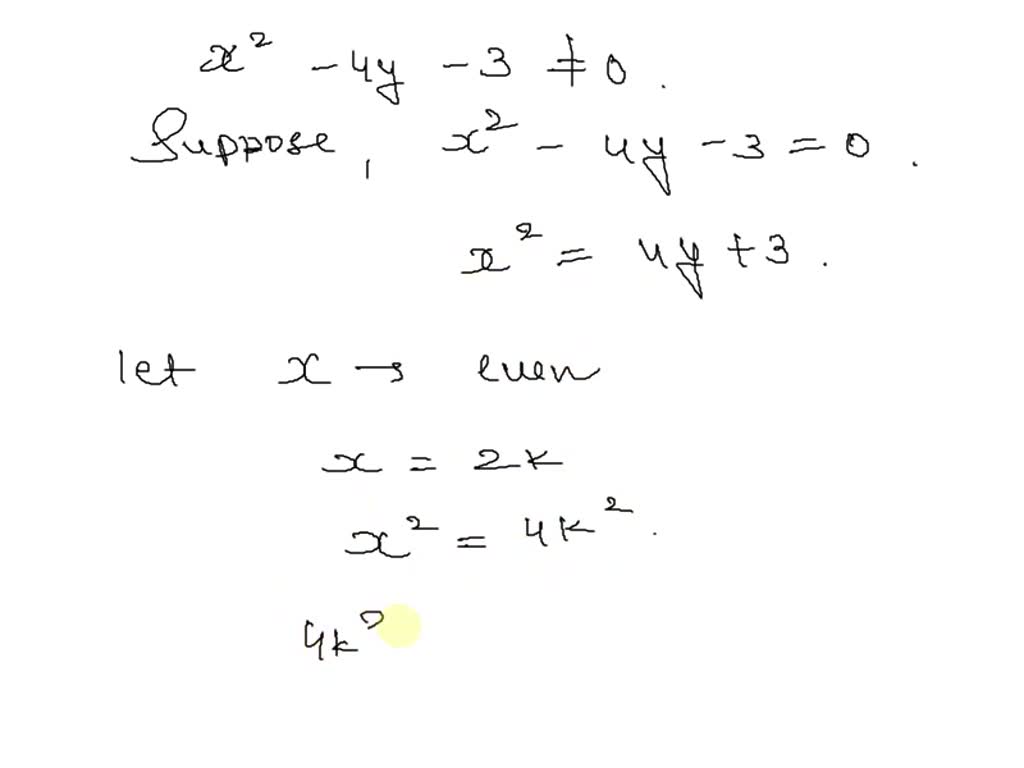 x² - 4y - 3 ≠ 0.
Suppose, x² - 4y - 3 = 0.
x² = 4y + 3.
let x → even
x = 2k
x² = 4k².
4k²